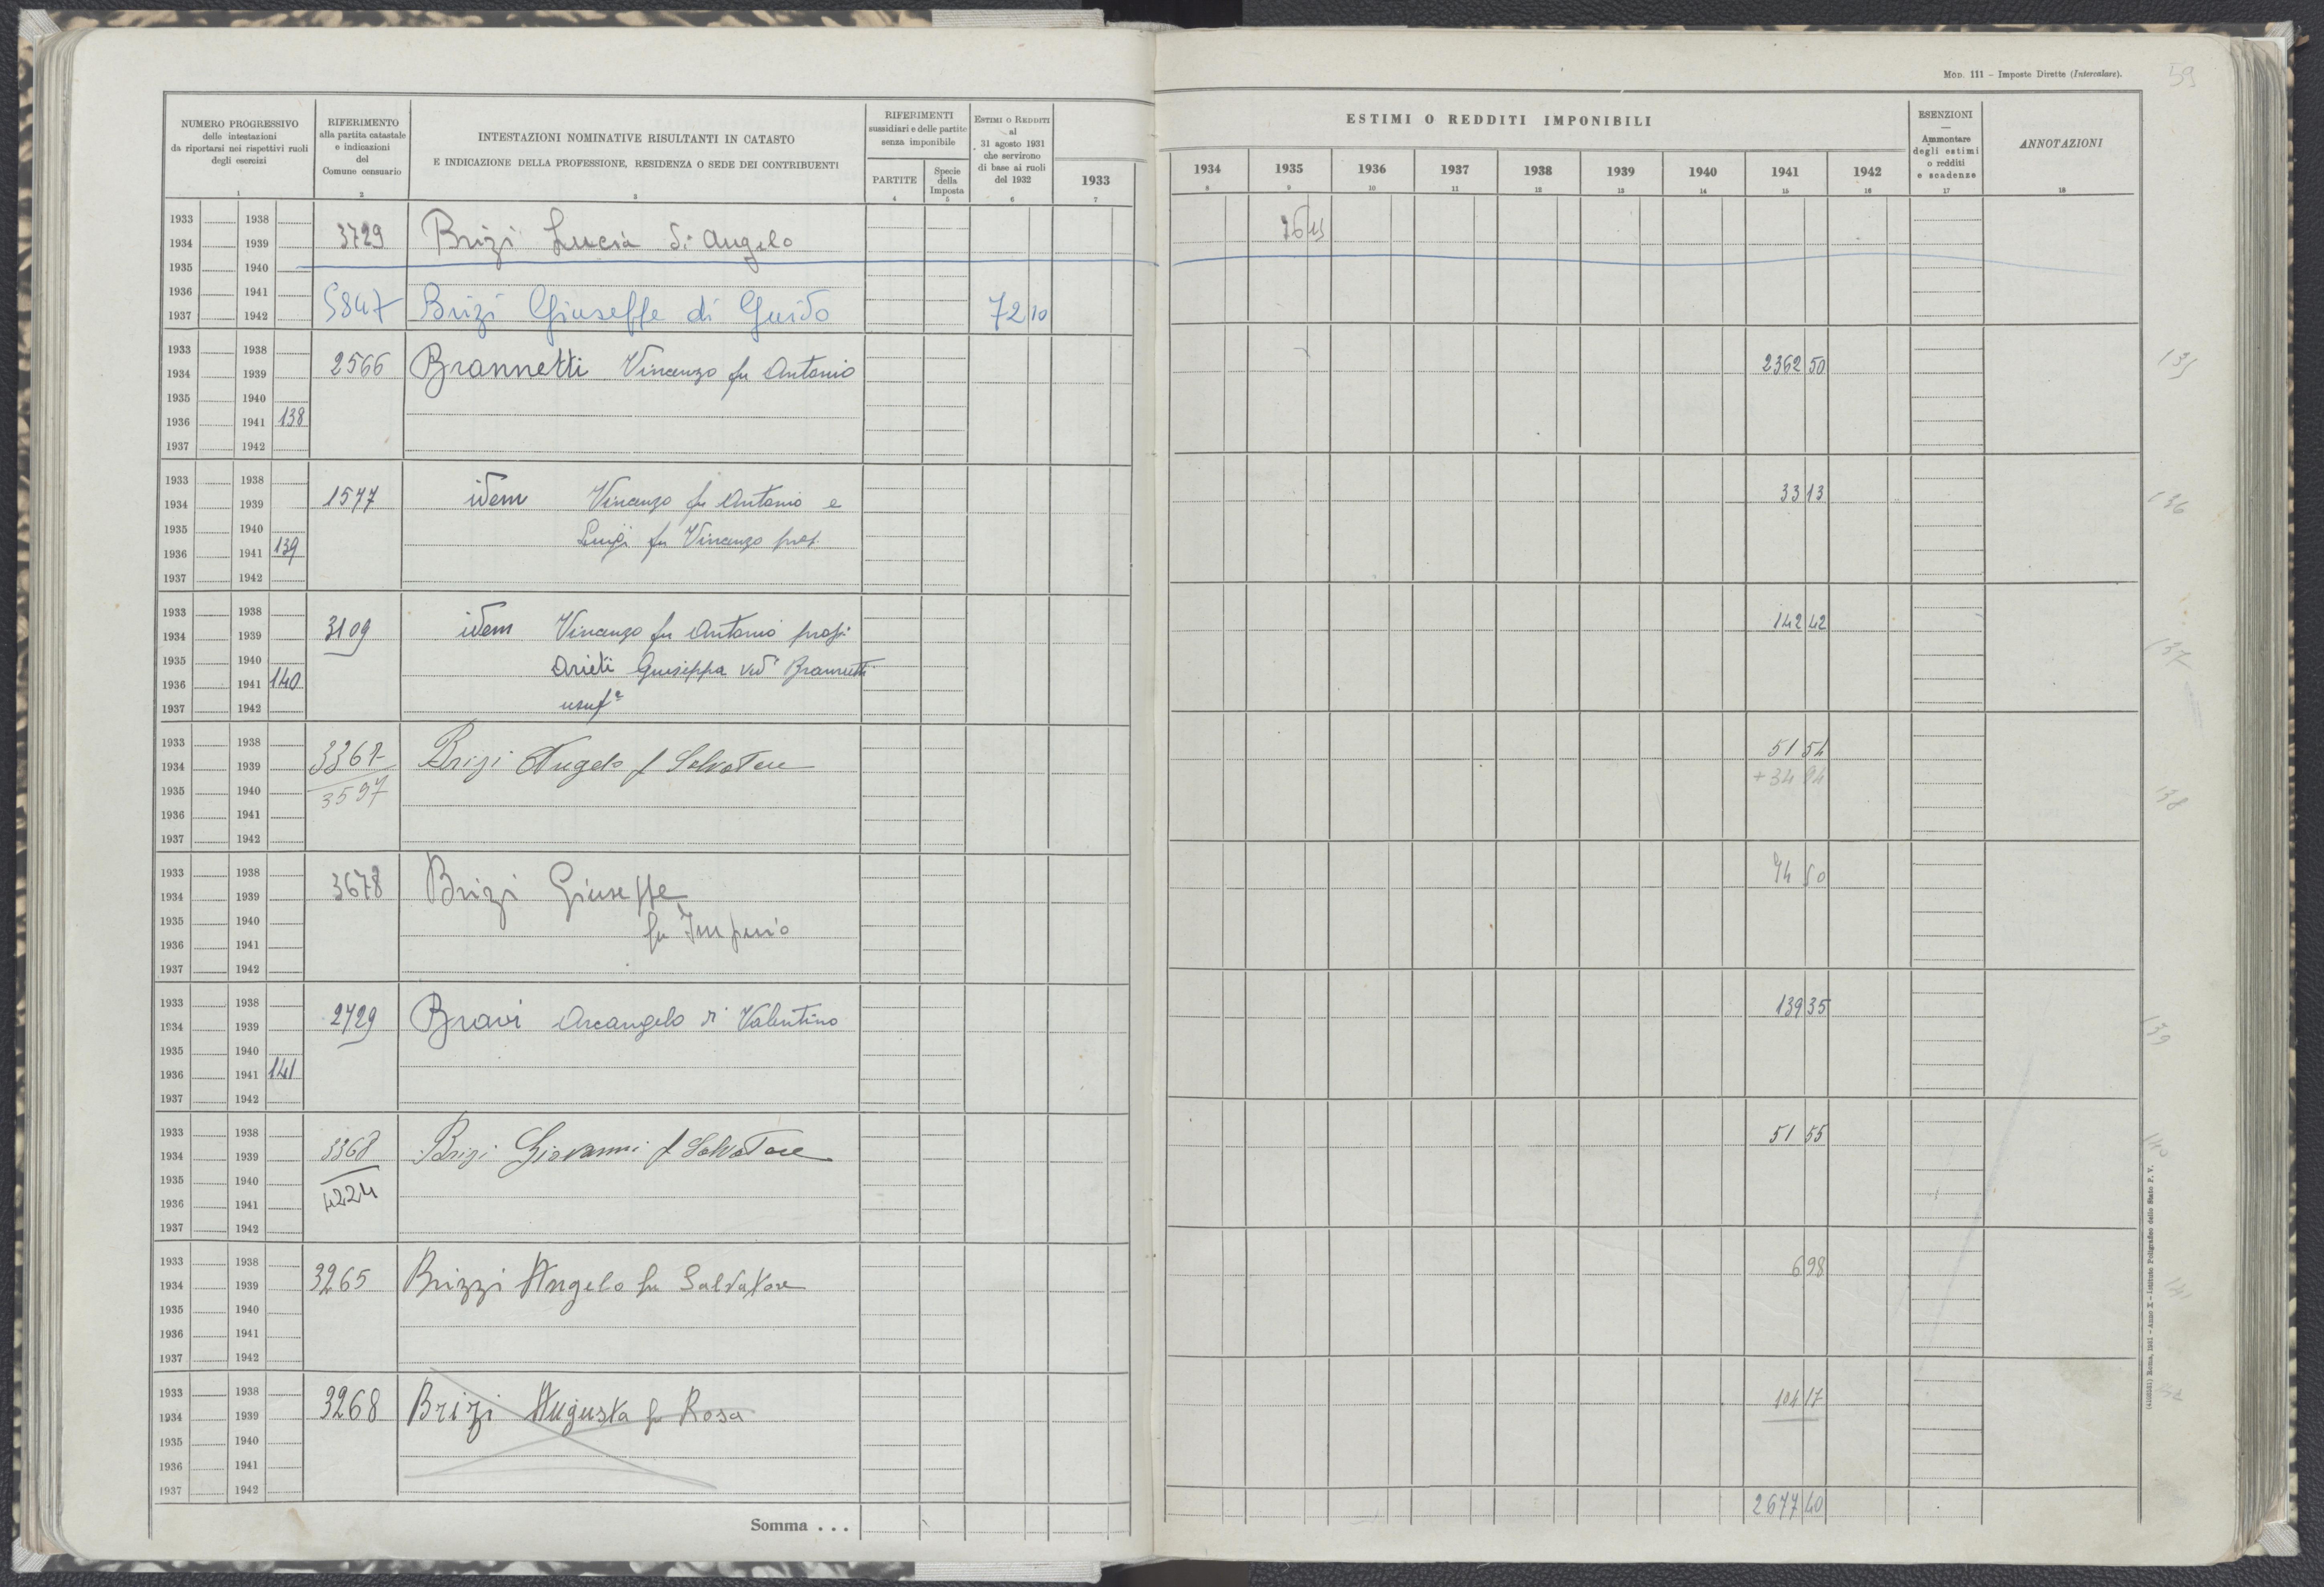 Mon. 111 – Imposte Dirette (Intercalare).
59
NUMERO PROGRESSIVO
delle intestazioni
da riportarsi nei rispettivi ruoli
degli esercizi
1
RIFERIMENTO
alla partita catastale
e indicazioni
del
Comune censuario
2
INTESTAZIONI NOMINATIVE RISULTANTI IN CATASTO
E INDICAZIONE DELLA PROFESSIONE, RESIDENZA O SEDE DEI CONTRIBUENTI
3
RIFERIMENTI
sussidiari e delle partite
senza imponibile
PARTITE
4
Specie
della
Imposta
5
ESTIMI O REDDITI
al
31 agosto 1931
che servirono
di base ai ruoli
del 1932
6
1933
7
ESTIMI O REDDITI IMPONIBILI
1934 1935 1936 1937 1938 1939 1940 1941 1942
8 9 10 11 12 13 14 15 16
ESENZIONI
—
Ammontare
degli estimi
o redditi
e scadenze
17
ANNOTAZIONI
18
1933 1938
1934 1939 3729 Brizi Lucia di Angelo
1935 1940
1936 1941
1937 1942 5847 Brizi Giuseppe di Guido 72 10
1933 1938
1934 1939 2566 Brannetti Vincenzo fu Antonio 2362 50 135
1935 1940
1936 1941 138
1937 1942
1933 1938
1934 1939 1577 idem Vincenzo fu Antonio e 33 13 136
1935 1940 Luigi fu Vincenzo prop.
1936 1941 139
1937 1942
1933 1938
1934 1939 3109 idem Vincenzo fu Antonio prop. 142 42 137
1935 1940 Arieti Giuseppa ved. Brannetti
1936 1941 140
1937 1942 usuf.
1933 1938
1934 1939 3367 Brizi Angelo f Salvatore 51 54
1935 1940 3597 +34 84 138
1936 1941
1937 1942
1933 1938
1934 1939 3678 Brizi Giuseppe 74 50
1935 1940 fu Imperio
1936 1941
1937 1942
1933 1938
1934 1939 2729 Bravi Arcangelo di Valentino 139 35 139
1935 1940
1936 1941 141
1937 1942
1933 1938
1934 1939 3368 Brizi Giovanni f Salvatore 51 55 140
1935 1940
1936 1941 4224
1937 1942
1933 1938
1934 1939 3265 Brizzi Angelo fu Salvatore 6 98 141
1935 1940
1936 1941
1937 1942
1933 1938
1934 1939 3268 Brizi Augusta fu Rosa 104 17
1935 1940
1936 1941
1937 1942
Somma . . . 2677 40
(4108051) Roma, 1931 – Anno X – Istituto Poligrafico dello Stato P. V.